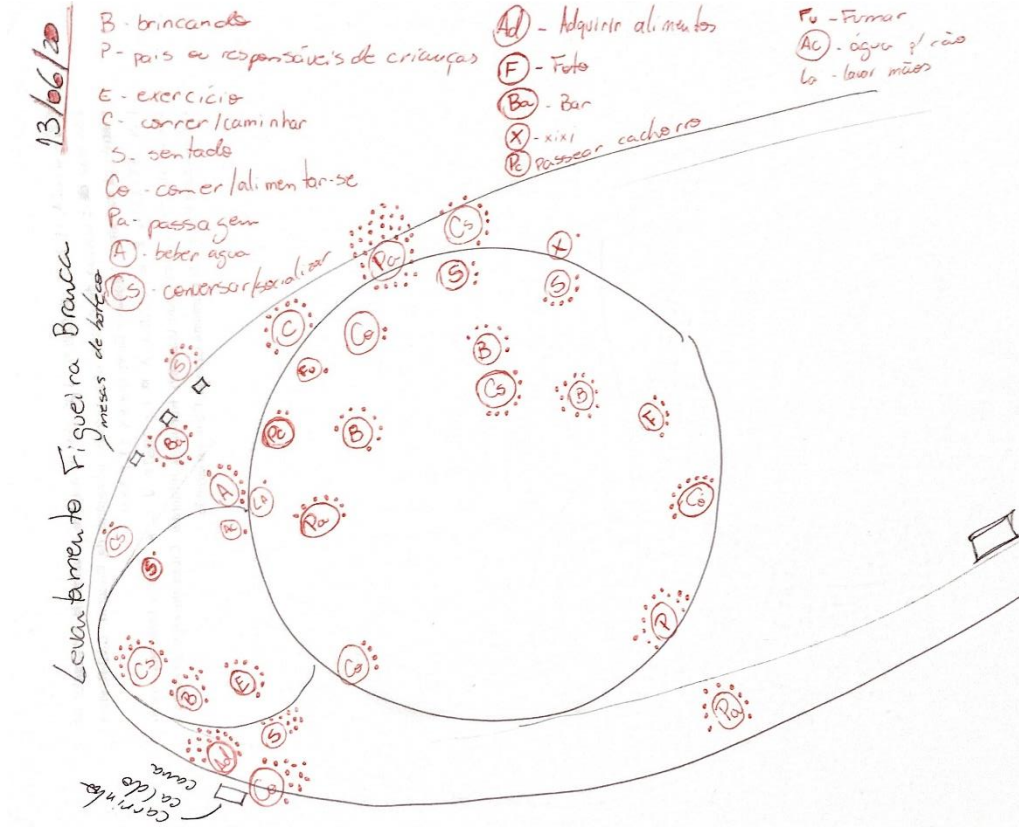 13/06/20
Levantamento Figueira Branca
B - brincando
P - pais ou responsáveis de crianças
E - exercício
C - correr/caminhar
S - sentado
Co - comer/alimentar-se
Pa - passagem
A - beber água
Cs - conversar/socializar
Ad - Adquirir alimentos
F - Foto
Ba - Bar
X - xixi
Pc passear cachorro
Fu - Fumar
Ac - água p/ cão
La - lavar mãos
mesas de boteco
Cs
Pa
X
S
S
C
Co
B
S
Fu
Cs
B
F
Ba
Pc
B
A
La
Co
Pa
Ac
Cs
S
P
Cs
Co
B
E
Pa
S
Ad
carrinho
caldo
cana